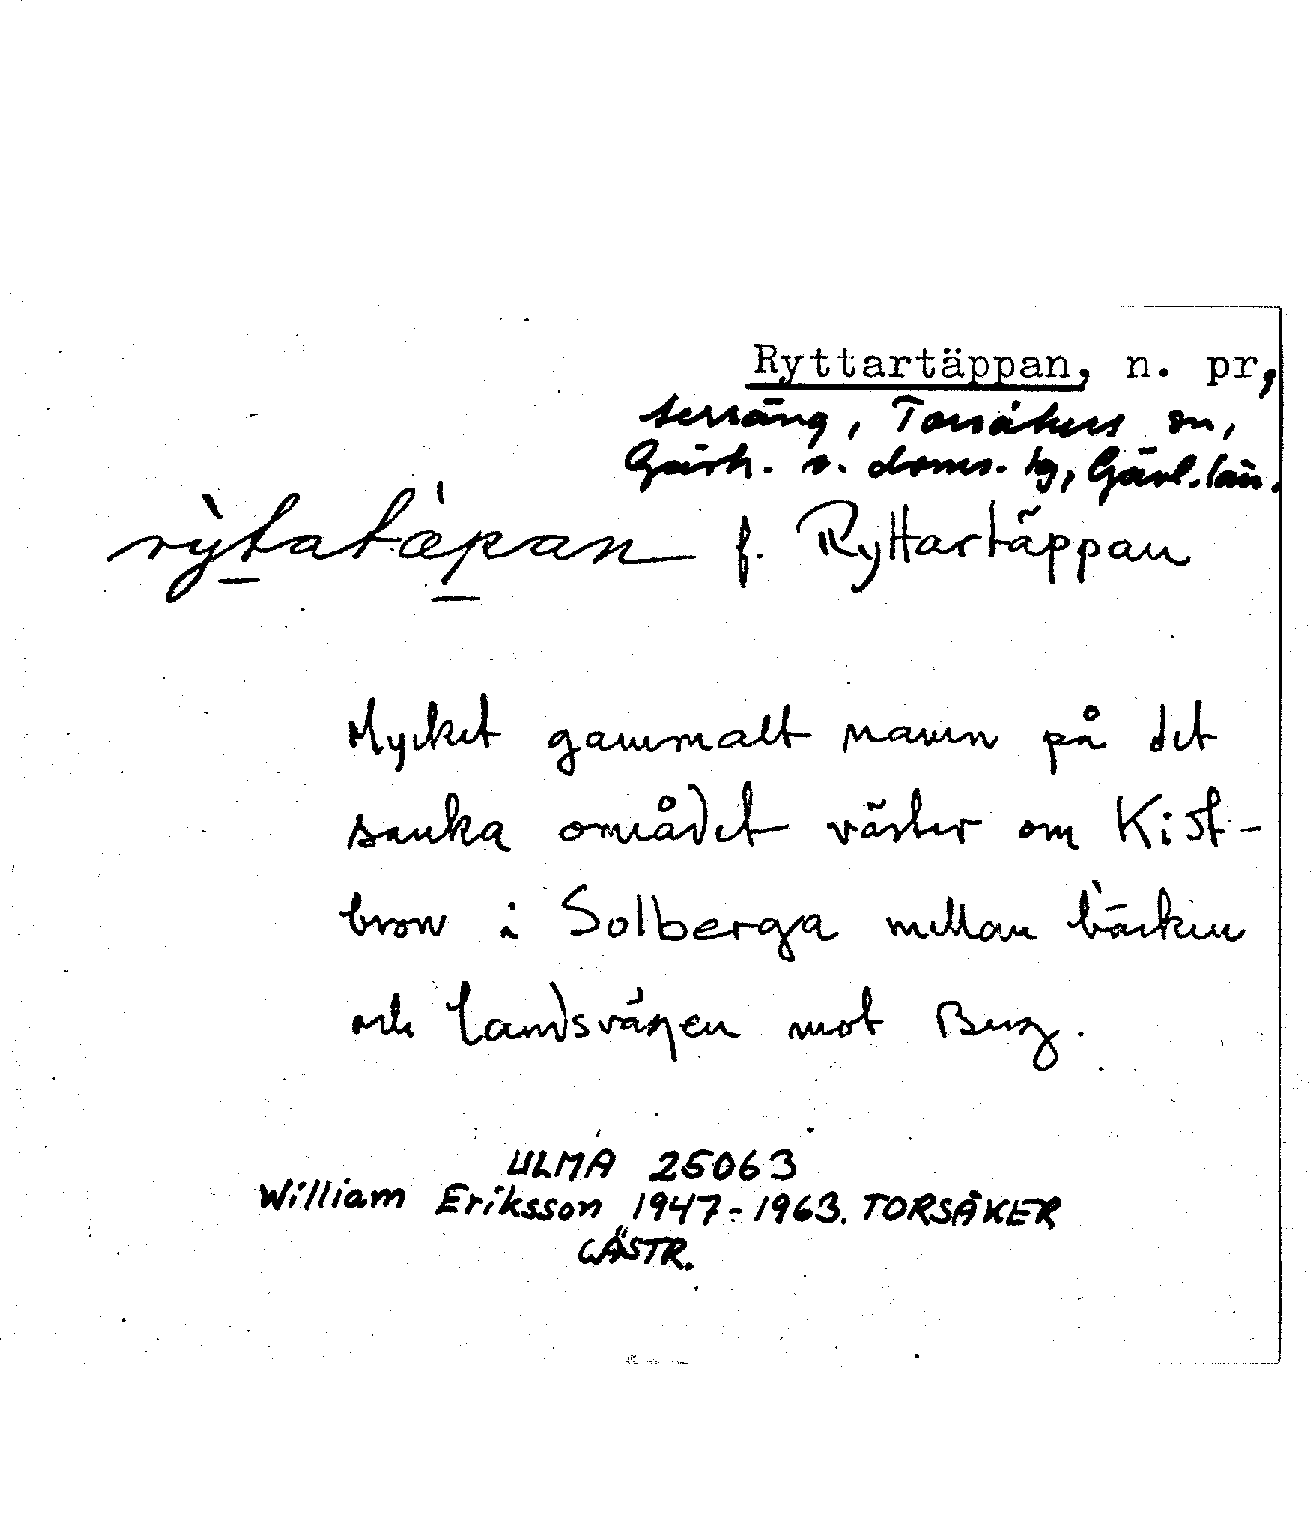 Ryttartäppan, n. pr,
terräng, Torsåkers sn,
Gästr. v. doms. tg, Gävl. län.
rỳtatæ̀pan f. Ryttartäppan
Mycket gammalt namn på det
sanka området väster om Kist-
bron i Solberga mellan bäcken
och landsvägen mot Berg.
ULMA 25063
William Eriksson 1947-1963. TORSÅKER
GÄSTR.